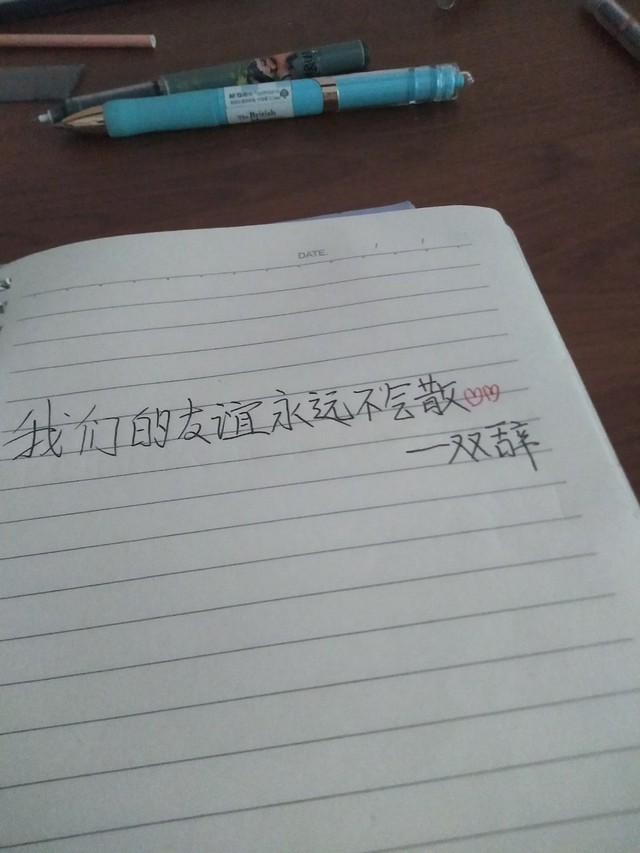 M&G
The British
DATE.
我们的友谊永远不会散
—双辞